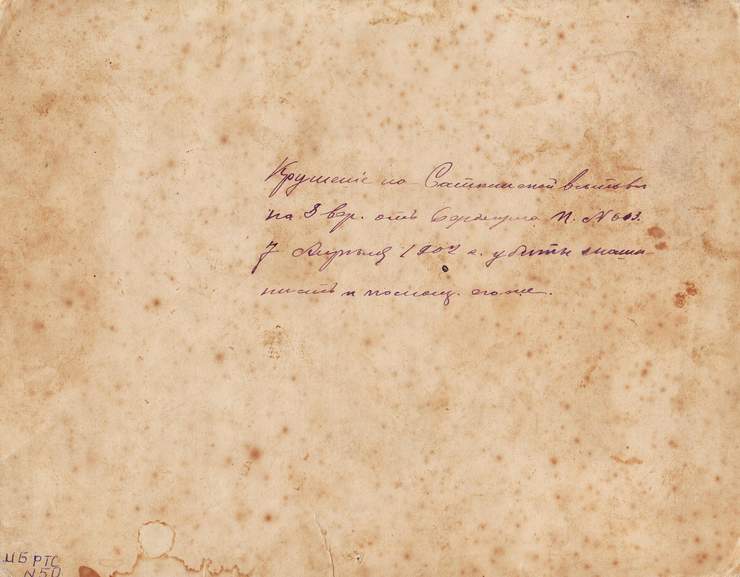 Крушеніе по Саткинской вѣтви
на 3 вер. отъ Бердяуша п. № 603.
7 Апрѣля 1902 г. убиты маши-
нистъ и помощ. его же.
ЦБ РТС
№50